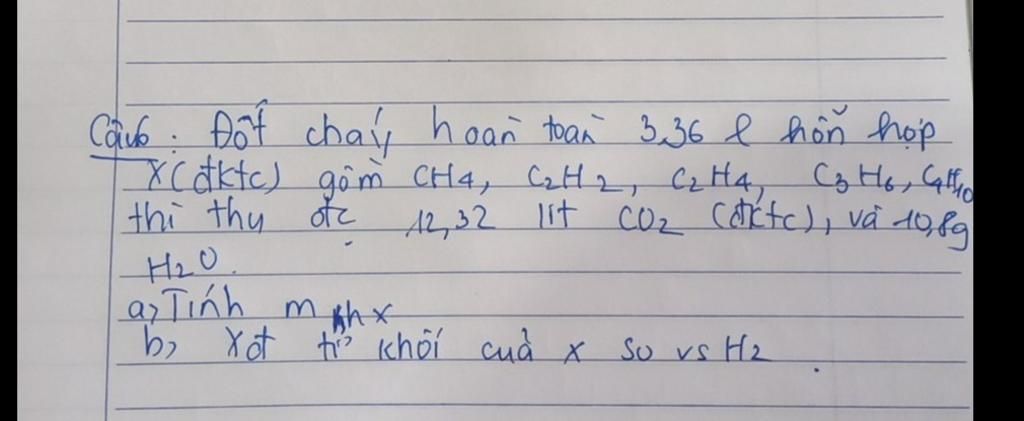 Câu6: Đốt cháy hoàn toàn 3,36 l hỗn hợp
X(đktc) gồm CH4, C2H2, C2H4, C3H6, C4H10
thì thu đc 12,32 lít CO2 (đktc), và 10,8g
H2O.
a, Tính m hh x
b, Xđ tỉ khối của x so vs H2.